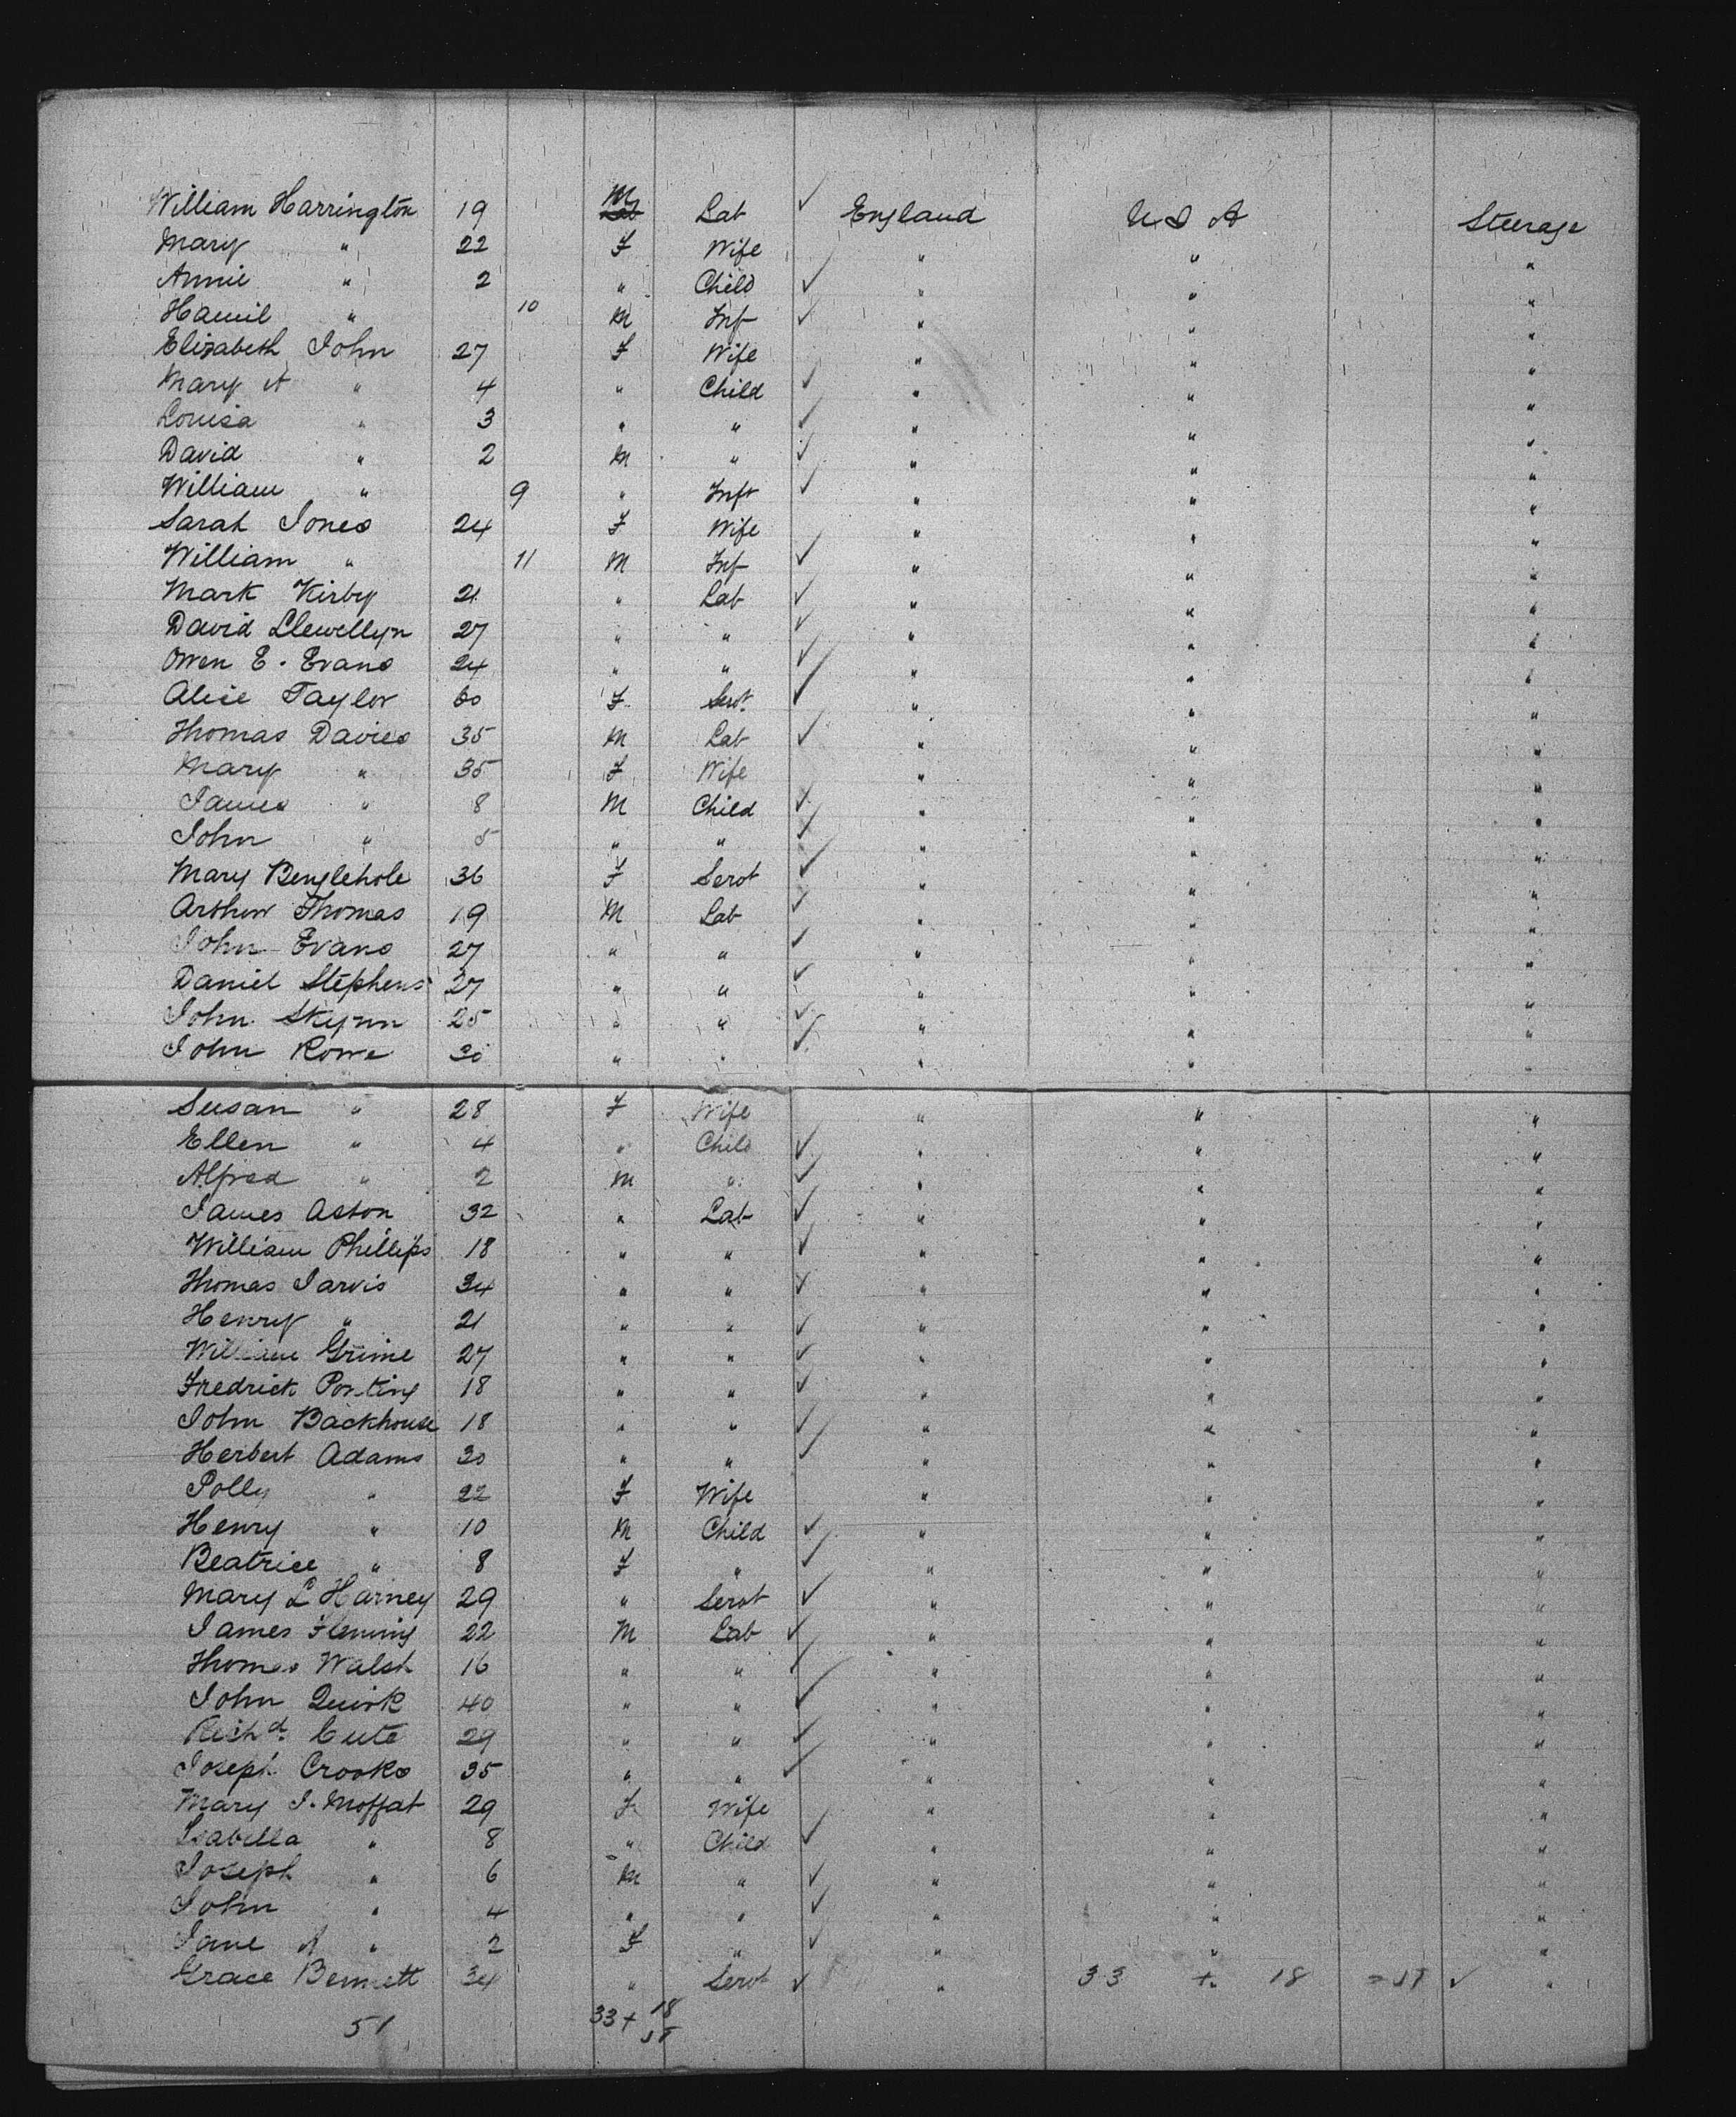 William Harrington 19 M Lab ✓ England U S A Steerage
Mary " 22 F Wife " " "
Annie " 2 " Child ✓ " " "
Hamil " 10 M Inf ✓ " " "
Elizabeth John 27 F Wife " " "
Mary A " 4 " Child ✓ " " "
Louisa " 3 " " ✓ " " "
David " 2 M " ✓ " " "
William " 9 " Inft ✓ " " "
Sarah Jones 24 F Wife " " "
William " 11 M Inf ✓ " " "
Mark Kirby 21 " Lab ✓ " " "
David Llewellyn 27 " " ✓ " " "
Owen E. Evans 24 " " ✓ " " "
Alice Taylor 60 F Servt ✓ " " "
Thomas Davies 35 M Lab ✓ " " "
Mary " 35 F Wife " " "
James " 8 M Child ✓ " " "
John " 5 " " ✓ " " "
Mary Benglehole 36 F Servt ✓ " " "
Arthur Thomas 19 M Lab ✓ " " "
John Evans 27 " " ✓ " " "
Daniel Stephens 27 " " ✓ " " "
John Skynn 25 " " ✓ " " "
John Rowe 30 " " ✓ " " "
Susan " 28 F Wife " " "
Ellen " 4 " Child ✓ " " "
Alfred " 2 M " ✓ " " "
James Aston 32 " Lab ✓ " " "
William Phillips 18 " " ✓ " " "
Thomas Jarvis 34 " " ✓ " " "
Henry " 21 " " ✓ " " "
William Grime 27 " " ✓ " " "
Fredrick Ponting 18 " " ✓ " " "
John Backhouse 18 " " ✓ " " "
Herbert Adams 30 " " ✓ " " "
Polly " 22 F Wife " " "
Henry " 10 M Child ✓ " " "
Beatrice " 8 F " ✓ " " "
Mary L Harney 29 " Servt ✓ " " "
James Fleming 22 M Lab ✓ " " "
Thomas Walsh 16 " " ✓ " " "
John Quirk 40 " " ✓ " " "
Richd. Cute 29 " " ✓ " " "
Joseph Crooks 35 " " ✓ " " "
Mary J. Moffat 29 F Wife " " "
Isabella " 8 " Child ✓ " " "
Joseph " 6 M " ✓ " " "
John " 4 " " ✓ " " "
Jane A " 2 F " ✓ " " "
Grace Bennett 34 " Servt ✓ " 33 + 18 = 51 ✓ "
51 33 + 18
51